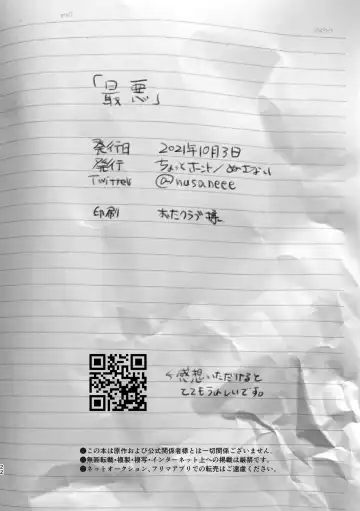 「最悪」
発行日 2021年10月3日
発行 ちょっとホント/めせない
Twitter @nusaneee
印刷 おたクラブ様
↳感想いただけると
とてもうれしいです。
●この本は原作および公式関係者様とは一切関係ございません。
●無断転載・複製・複写・インターネット上への掲載は厳禁です。
●ネットオークション、フリマアプリでの転売はご遠慮ください。